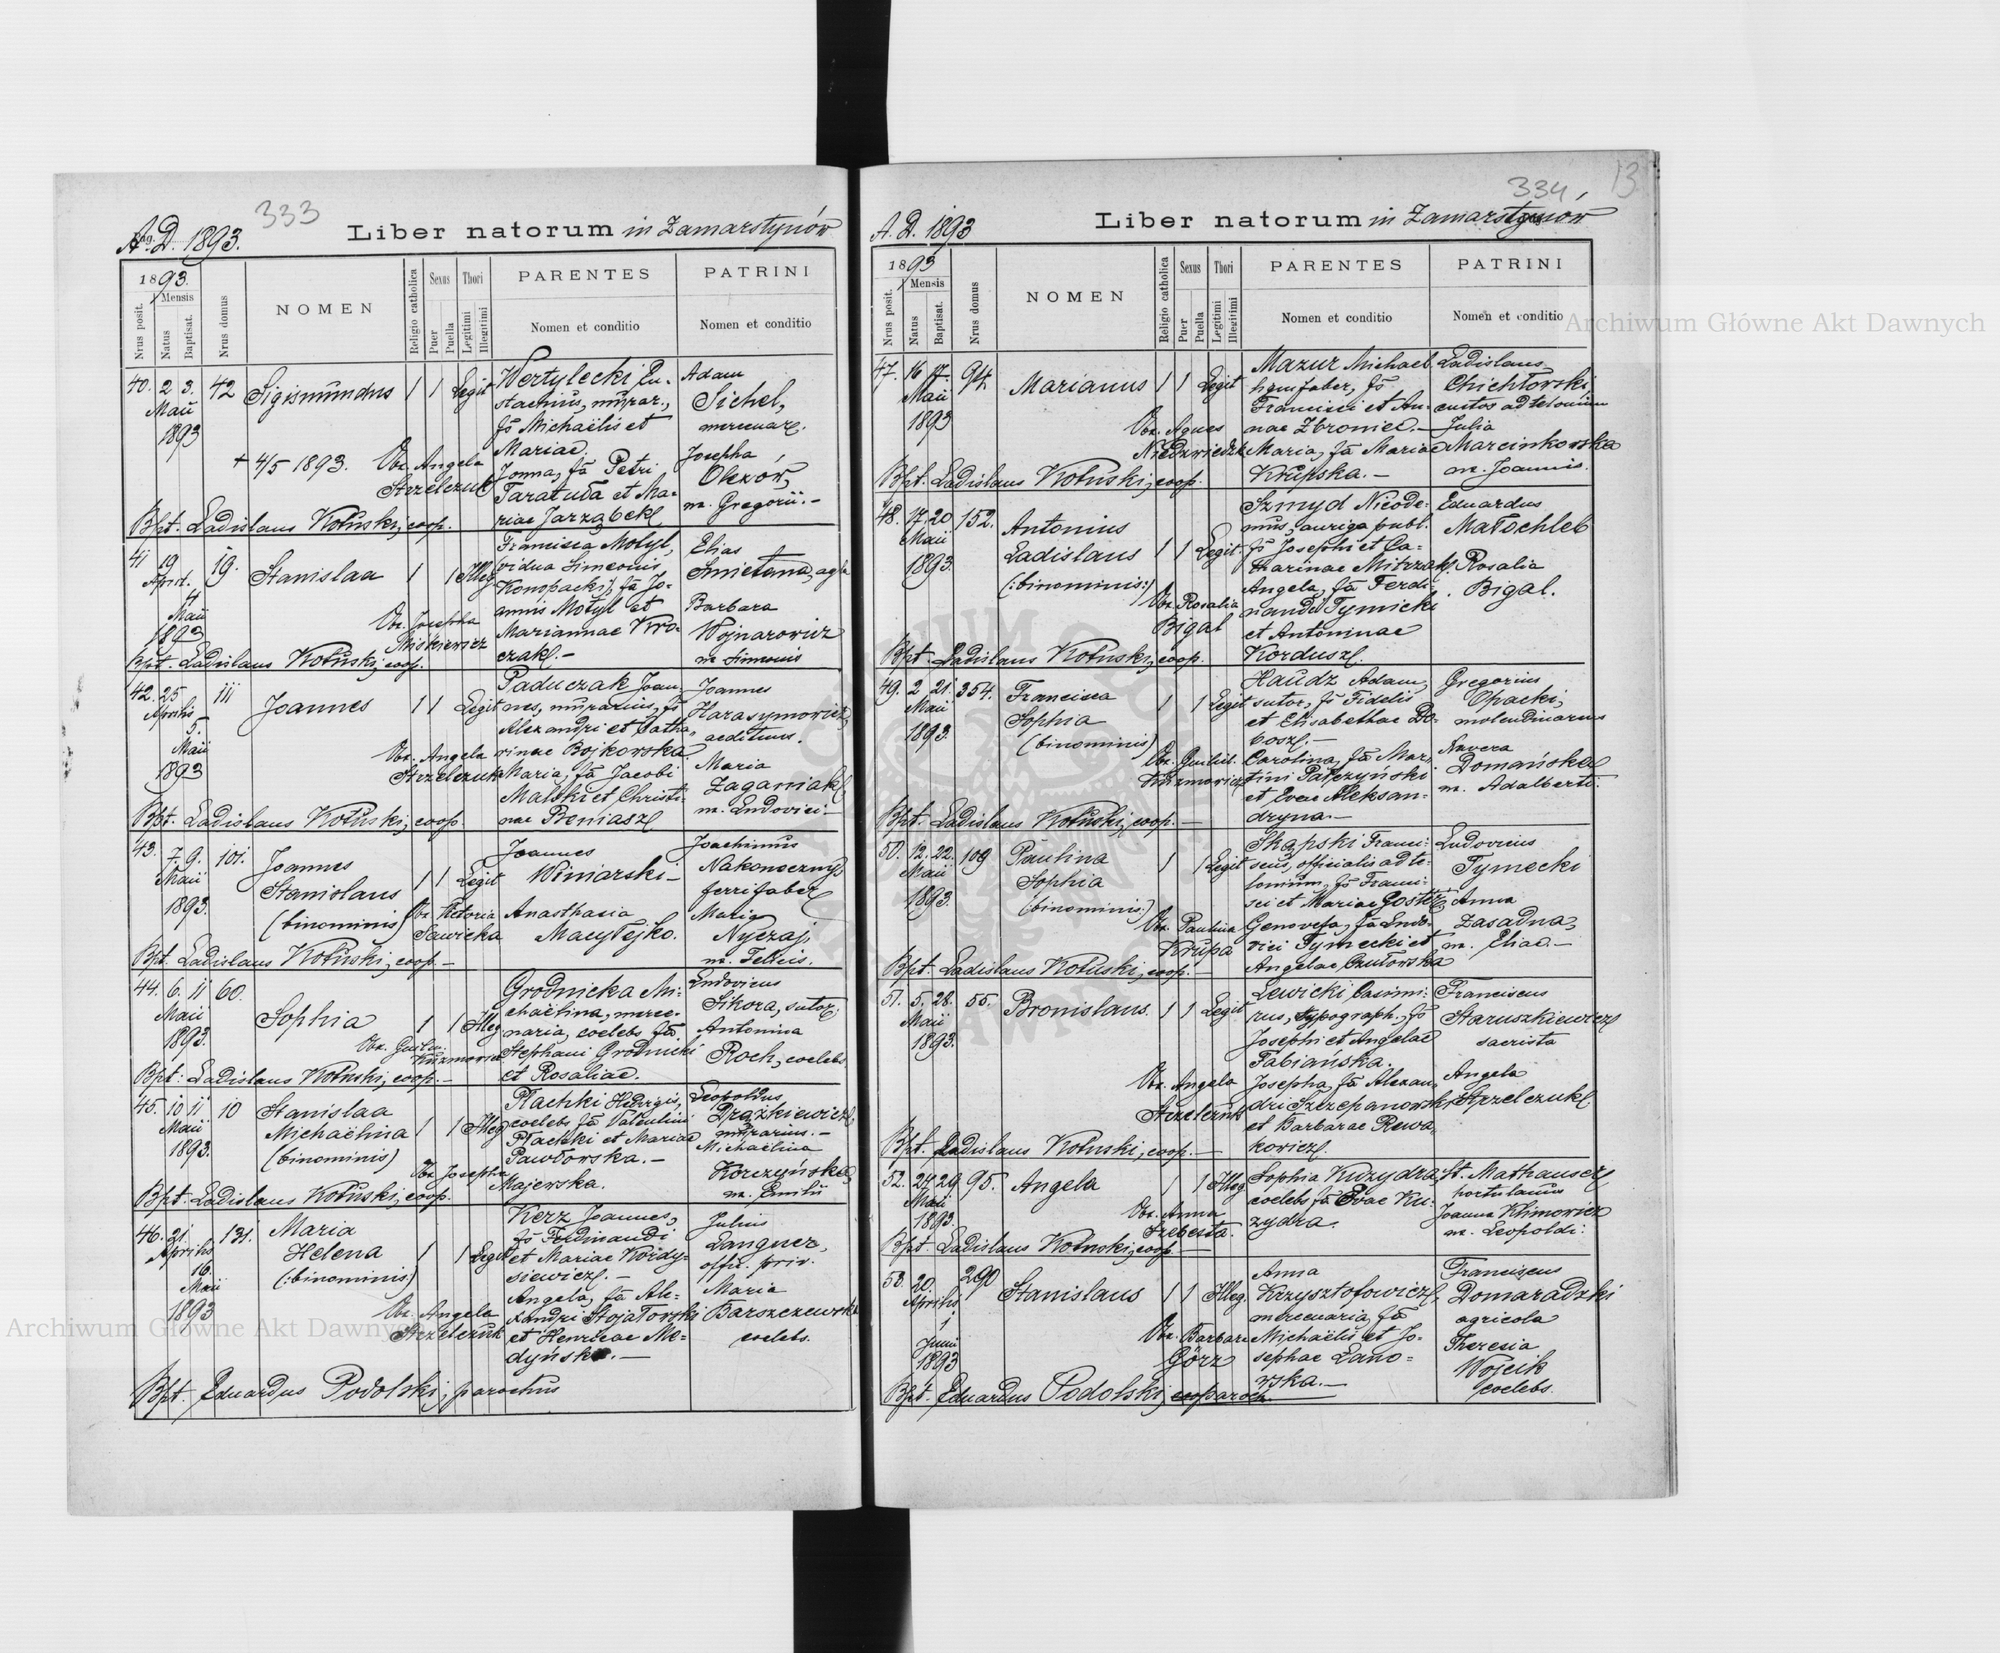 333
A. D. 1893.
Liber natorum in Zamarstynów
1893.
Nrus posit.
Mensis
Natus
Baptisat.
Nrus domus
NOMEN
Religio catholica
Sexus
Puer
Puella
Thori
Legitimi
Illegitimi
PARENTES
Nomen et conditio
PATRINI
Nomen et conditio
40. 2 3. 42 Sigismundus 1 1 Legit
Maii
1893
+ 4/5 1893. Obx. Angela
Strzelczuk
Wertylecki Eu-
stachius, murar.,
fs Michaëlis et
Mariae.
Joanna, fa Petri
Taratuda et Ma-
riae Jarząbek
Adam
Sichel,
mercenar.
Josepha
Okzów,
m. Gregorii.-
Bpt. Ladislaus Kotuski, coop.
41 19 19. Stanislaa 1 1 Illeg
April.
4
Maii
1893
Obx. Josepha
Miskiewicz
Francisca Motyl,
vidua Simeonis
Konopacki, fa Jo-
annis Motyl et
Mariannae Kro-
czak.-
Elias
Smietana, agr
Barbara
Wojnarowicz
m Simeonis
Bpt. Ladislaus Kotuski, coop.
42. 25 111 Joannes 1 1 Legit
Aprilis
5.
Maii
1893
Obx. Angela
Strzelczuk
Paduczak Joan-
nes, murarius, fs
Alexandri et Catha-
rinae Bojkowska
Maria, fa Jacobi
Malski et Christi-
nae Beniasz
Joannes
Harasymowicz,
aedituus.
Maria
Zaganiak
m. Ludovici-
Bpt. Ladislaus Kotuski, coop.
43. 7. 9. 101. Joannes
Maii Stanislaus 1 1 Legit
1893. (binominis)
Obx. Victoria
Sawicka
Joannes
Winiarski-
Anasthasia
Macytejko.
Joachimus
Nakoneczny
ferrifaber
Maria
Nyczaj,
m. Felicis.
Bpt. Ladislaus Kotuski, coop.-
44. 6. 11 60. Sophia 1 1 Illeg
Maii
1893.
Obx. Guilel.
Kuzmowicz
Grodnicka Mi-
chaëlina, merce-
naria, coelebs fa
Stephani Grodnicki
et Rosaliae.
Ludovicus
Sikora, sutor.
Antonina
Roch, coelebs
Bpt. Ladislaus Kotuski, coop.-
45. 10 11 10 Stanislaa
Maii Michaëlina 1 1 Illeg
1893. (binominis)
Obx. Josepha
Majewska.
Plachki Hedvigis,
coelebs fa Valentini
Plachki et Mariae
Pawtowska.-
Leopoldus
Drążkiewicz
murarius.-
Michaëlina
Korczyńska,
m. Emilii
Bpt. Ladislaus Kotuski, coop.
46. 21. 131. Maria
Aprilis Helena 1 1 Legit
16. (:binominis:)
Maii
1893
Obx. Angela
Strzelczuk
Kerz Joannes,
fs Ferdinandi
et Mariae Kordy-
siewicz.-
Angela, fa Ale-
xandri Stojatowski
et Henricae Me-
dyńsk.-
Julius
Langner,
offic. priv.
Maria
Barszczewska
coelebs.
Bpt. Eduardus Podolski, parochus
334 13
A. D. 1893
Liber natorum in Zamarstynów
1893
Nrus posit.
Mensis
Natus
Baptisat.
Nrus domus
NOMEN
Religio catholica
Sexus
Puer
Puella
Thori
Legitimi
Illegitimi
PARENTES
Nomen et conditio
PATRINI
Nomen et conditio
47. 16 17. 94. Marianus 1 1 Legit
Maii
1893
Obx. Agnes
Niedzwiedzk
Mazur Michael
lignifaber, fs
Francisci et An-
nae Zbroniec.-
Maria, fa Mariae
Krupska.-
Ladislaus
Chichtowski,
custos ad telonium
Julia
Marcinkowska
m. Joannis.
Bpt. Ladislaus Kotuski, coop.
48. 17. 20. 152. Antonius
Maii Ladislaus 1 1 Legit.
1893. (:binominis:)
Obx. Rosalia
Bigal
Szmyd Nicode-
mus, auriga publ.
fs Josephi et Ca-
tharinae Mitrzak.
Angela, fa Ferdi-
nandi Tymicki
et Antoninae
Kordusz.
Eduardus
Matochleb
Rosalia
Bigal.
Bpt. Ladislaus Kotuski, coop.
49. 2 21. 354. Francisca
Maii Sophia 1 1 Legit
1893. (binominis)
Obx. Guilel.
Kuzmowicz
Haudz Adam,
sutor, fs Fidelis
et Elisabethae Do-
bosz.-
Carolina, fa Mar-
tini Patczyński
et Evae Aleksan-
dryna.-
Gregorius
Opacki,
molendinarius
Xavera
Domańska
m. Adalberti.
Bpt. Ladislaus Kotuski, coop.-
50. 12. 22. 109 Paulina
Maii Sophia 1 1 Legit
1893. (:binominis:)
Obx. Paulina
Krupa
Skąpski Franci-
scus, officialis ad te-
lonium, fs Franci-
sci et Mariae
Genovefa, fa Ludo-
vici Tymecki et
Angelae Czutowska
Ludovicus
Tymecki
Anna
Zasadna,
m. Eliae.-
Bpt. Ladislaus Kotuski, coop.-
51. 5. 28. 55. Bronislaus. 1 1 Legit
Maii
1893.
Obx. Angela
Strzelczuk
Lewicki Casimi-
rus, typograph., fs
Josephi et Angelae
Fabiańska.
Josepha, fa Alexan-
dri Szczepanowski
et Barbarae Rewa-
kowicz.
Franciscus
Staruszkiewicz
sacrista
Angela
Strzelczuk.
Bpt. Ladislaus Kotuski, coop.-
52. 24 29. 95. Angela 1 1 Illeg
Maii
1893.
Obx. Anna
Szebesta.
Sophia Kuzydra,
coelebs fa Evae Ku-
zydra.
St. Mathauser
hortulanus
Joanna Klimowicz
m. Leopoldi.
Bpt. Ladislaus Kotuski, coop.-
53. 20. 290 Stanislaus 1 1 Illeg.
Aprilis
1
Junii
1893
Obx. Barbara
Görz
Anna
Krzysztofowicz,
mercenaria, fa
Michaëlis et Jo-
sephae Lano-
wska.-
Franciscus
Domaradzki
agricola
Theresia
Wojcik
coelebs.
Bpt. Eduardus Podolski,
Archiwum Główne Akt Dawnych
Archiwum Główne Akt Dawnych